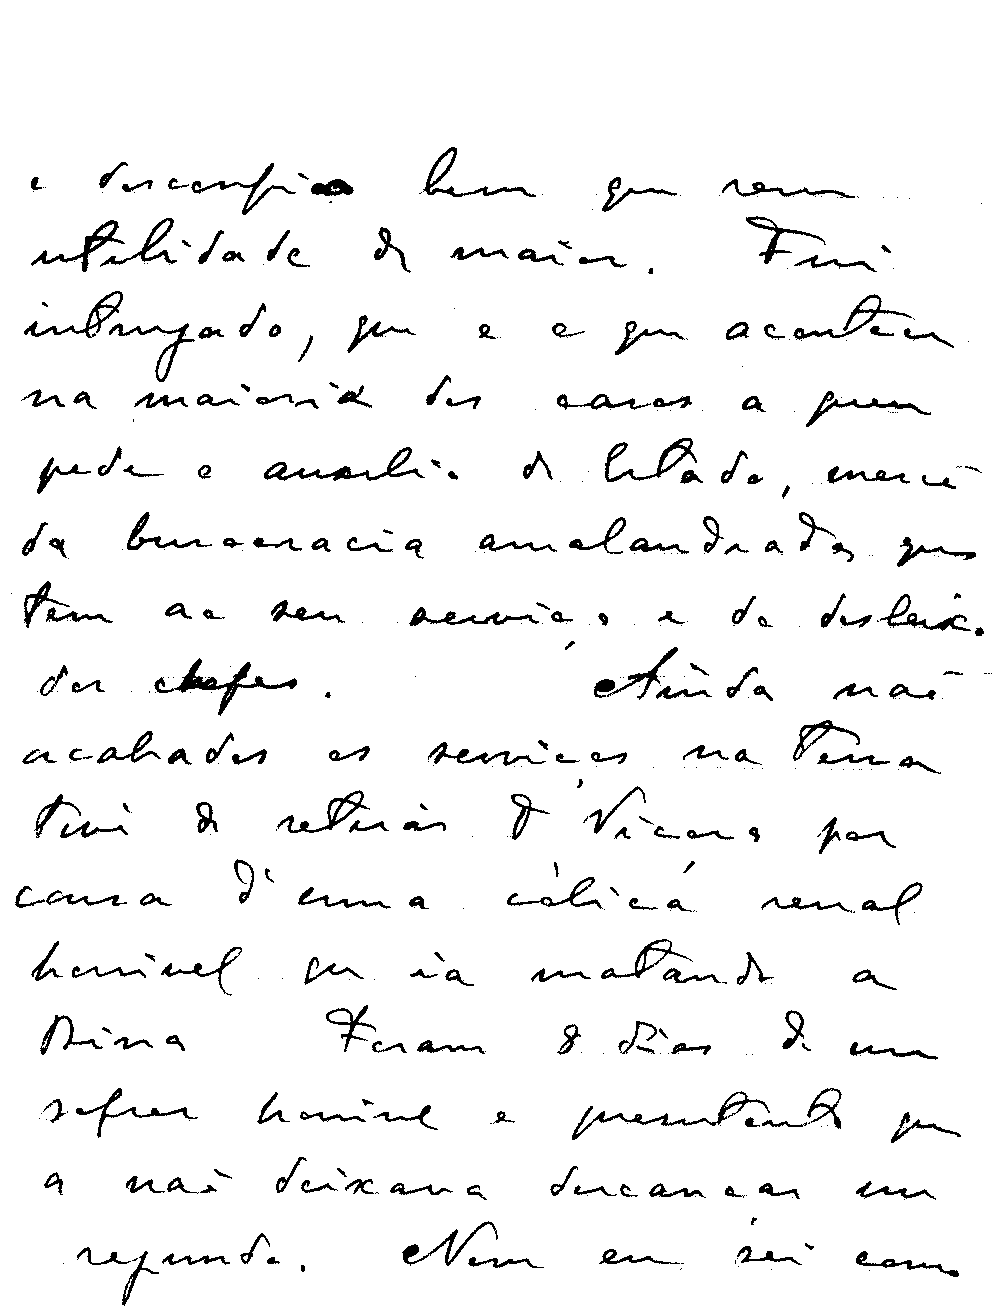 e desconfio bem que sem
utilidade de maior. Fui
intrujado, que é o que acontece
na maioria dos casos a quem
pede o auxilio do Estado, mercê
da burocracia amalandrada que
tem ao seu serviço e do desleixo
dos chefes. Ainda não
acabados os serviços na Terra
tive de retirar p.ª Viçosa por
causa d'uma cólica renal
horrivel que ia matando a
Dina Foram 8 dias de um
sofrer horrivel e persistente que
a não deixava descançar um
segundo. Nem eu sei como